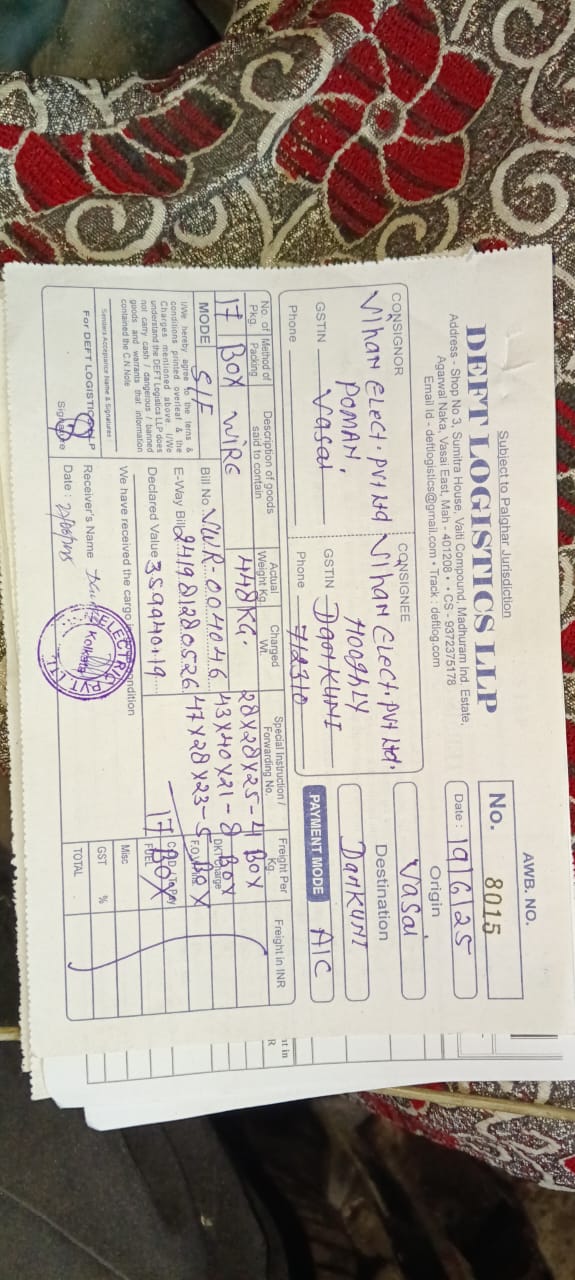 Subject to Palghar Jurisdiction
DEFT LOGISTICS LLP
Address - Shop No 3, Sumitra House, Vaiti Compound, Madhuram Ind. Estate,
Agarwal Naka, Vasai East, Mah - 401208 • • CS - 9372375178
Email Id - deftlogistics@gmail.com • Track : deftlog.com
AWB. NO.
No. 8015
Date : 19/6/25
CONSIGNOR
Vihan Elect. Pvt Ltd
POMAN.
GSTIN Vasai
Phone
CONSIGNEE
Vihan Elect. Pvt Ltd.
Hooghly
GSTIN DANKUNI
Phone 712310
Origin
Vasai
Destination
DANKUNI
PAYMENT MODE A/C
No. of Pkg. Method of Packing Description of goods said to contain Actual Weight Kg. Charged Wt. Special Instruction / Forwarding No. Freight Per Kg. Freight in INR
17 BOX WIRE 448 KG. 28X28X25-4 BOX
43X40X21-8 BOX
47X28X23-5 BOX
17 BOX
MODE S/F
Bill No. VWR-004046
E-Way Bill 241981280526
Declared Value 359940.19
I/We hereby agree to the terms &
conditions printed overleaf & the
Charges mentioned above. I/We
understand the DEFT Logistics LLP does
not carry cash / dangerous / banned
goods and warrants that information
contained the C.N.Note
Senders Acceptance Name & Signatures
For DEFT LOGISTICS LLP
Signature
We have received the cargo condition
Receiver's Name
Date :
ELECTRIC PVT. LTD.
Kolkata
DKT Charge
FUEL
Misc
GST %
TOTAL